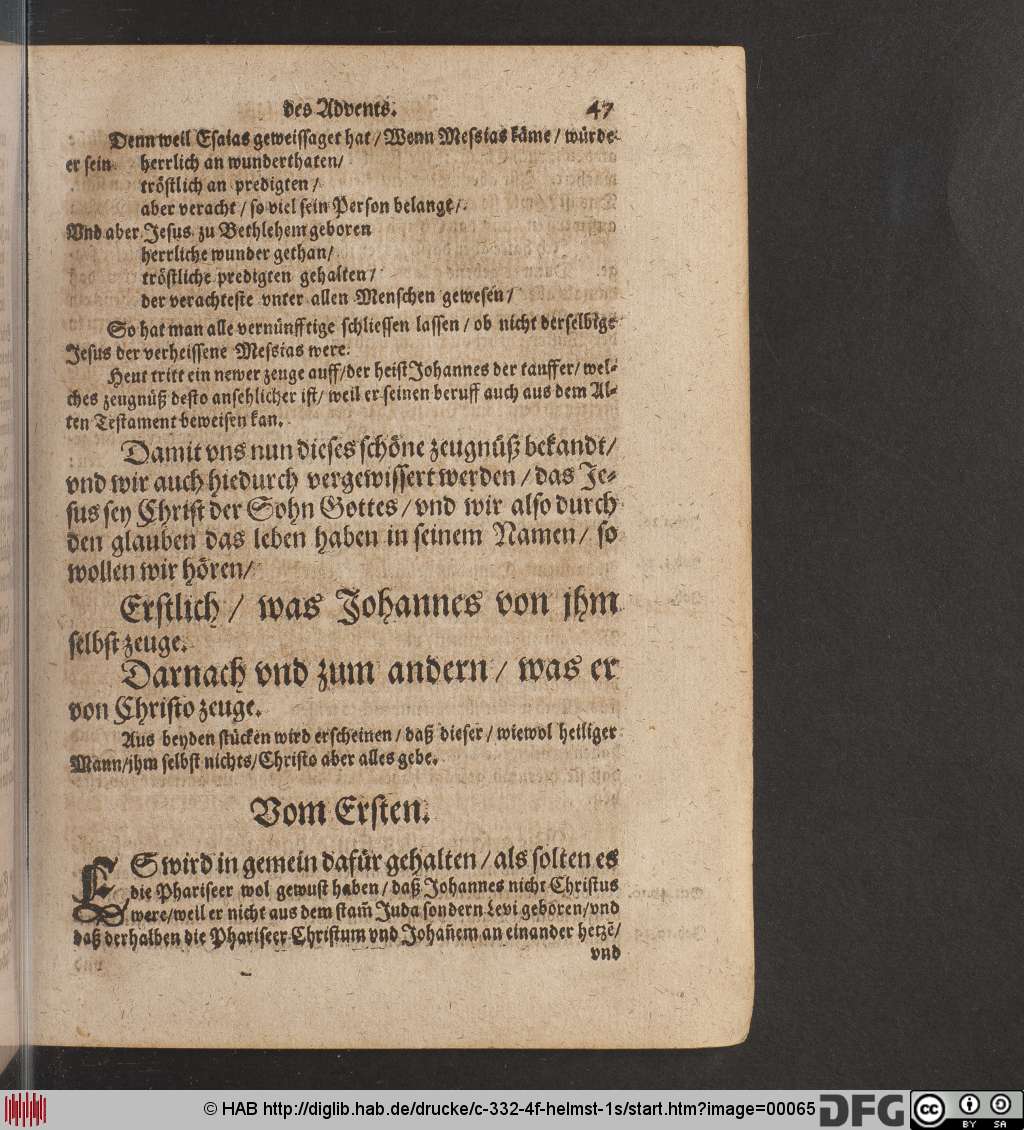 des Advents. 47
Denn weil Esaias geweissaget hat / Wenn Messias käme / würde
er sein herrlich an wunderthaten /
tröstlich an predigten /
aber veracht / so viel sein Person belangt /
Vnd aber Jesus zu Bethlehem geboren
herrliche wunder gethan /
tröstliche predigten gehalten /
der verachteste vnter allen Menschen gewesen /
So hat man alle vernünfftige schliessen lassen / ob nicht derselbige
Jesus der verheissene Messias were.
Heut tritt ein newer zeuge auff / der heist Johannes der tauffer / wel-
ches zeugnüß desto ansehlicher ist / weil er seinen beruff auch aus dem Al-
ten Testament beweisen kan.
Damit vns nun dieses schöne zeugnüß bekandt /
vnd wir auch hiedurch vergewissert werden / das Je-
sus sey Christ der Sohn Gottes / vnd wir also durch
den glauben das leben haben in seinem Namen / so
wollen wir hören /
Erstlich / was Johannes von jhm
selbst zeuge.
Darnach vnd zum andern / was er
von Christo zeuge.
Aus beyden stücken wird erscheinen / daß dieser / wiewol heiliger
Mann / jhm selbst nichts / Christo aber alles gebe.
Vom Ersten.
ES wird in gemein dafür gehalten / als solten es
die Phariseer wol gewust haben / daß Johannes nicht Christus
were / weil er nicht aus dem stam̃ Juda sondern Levi geboren / vnd
daß derhalben die Phariseer Christum vnd Johañem an einander hetzẽ /
vnd
© HAB http://diglib.hab.de/drucke/c-332-4f-helmst-1s/start.htm?image=00065 DFG cc BY SA